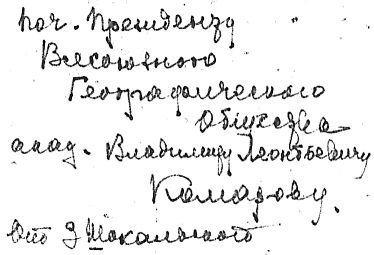 поч. Президенту
Всесоюзного
Географического
Общества
акад. Владимиру Леонтьевичу
Комарову.
От З Шокальского